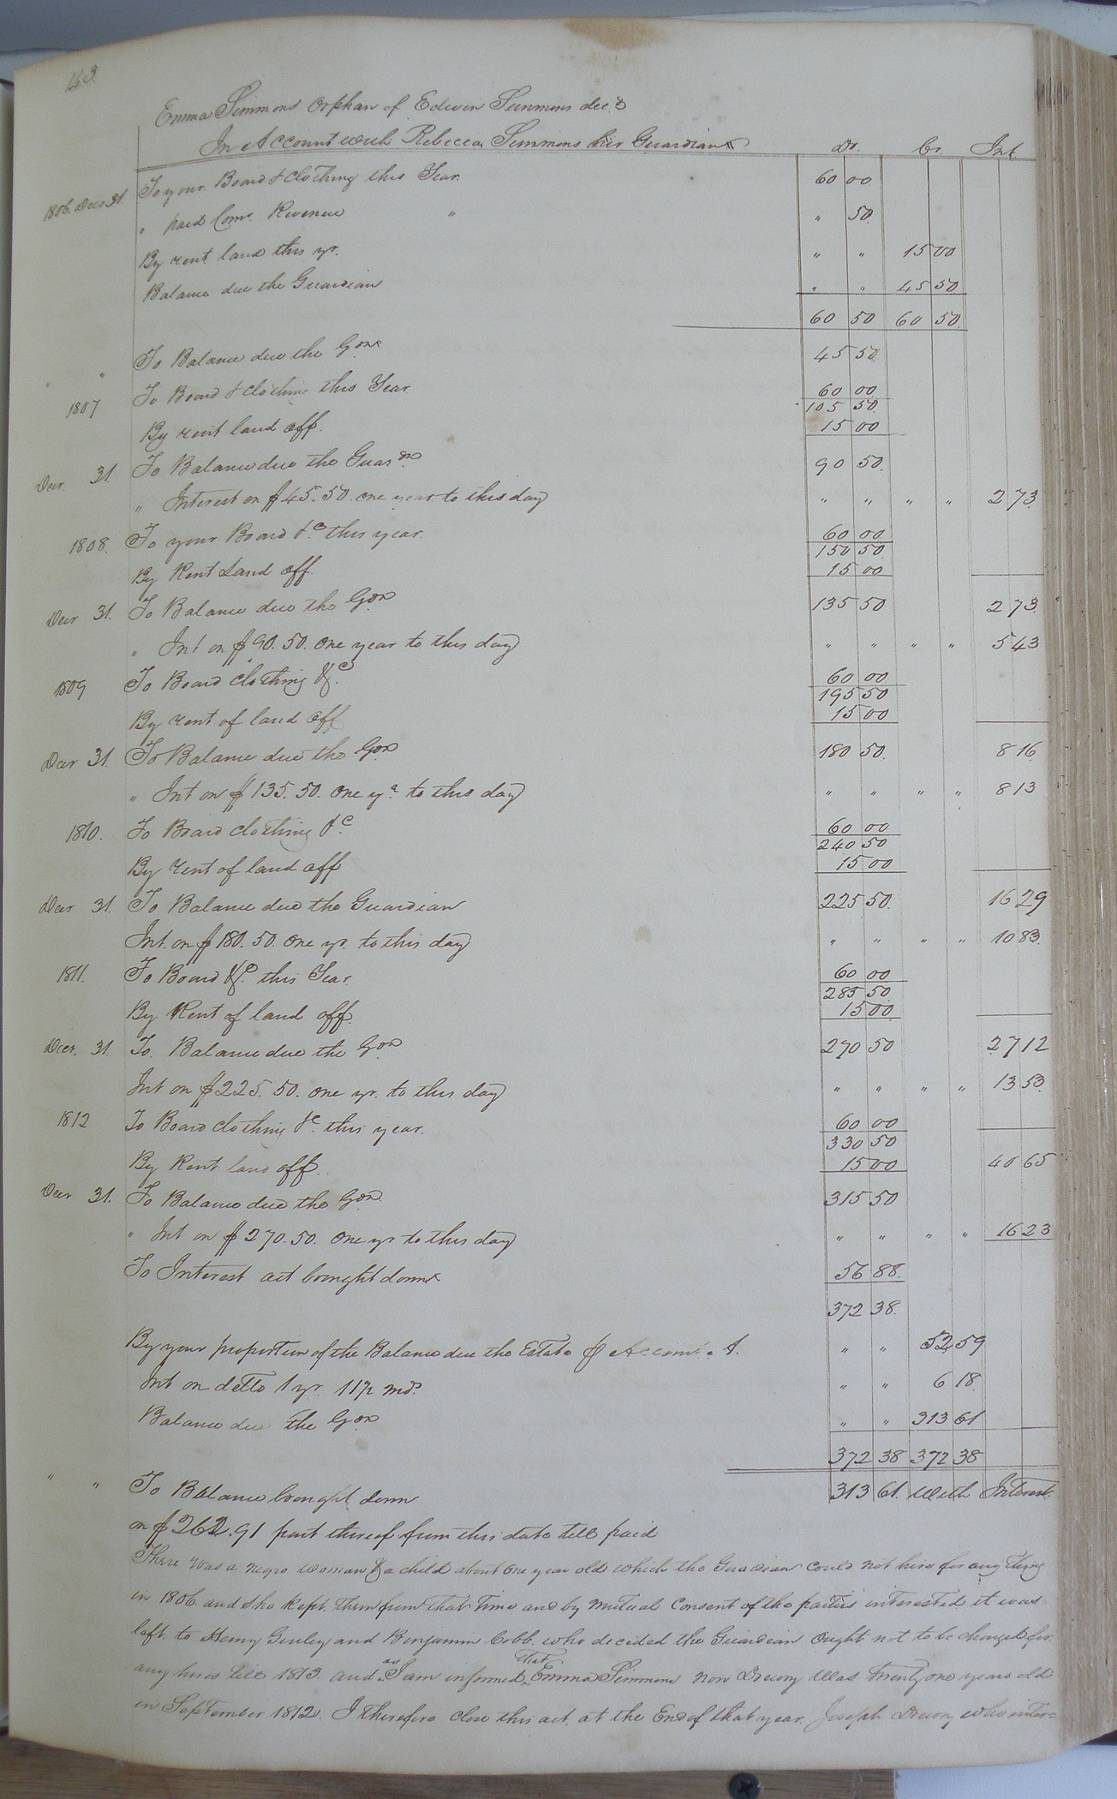 163
Emma Simmons Orphan of Edwin Simmons dec'd
In Account with Rebecca Simmons her Guardian Dr. Cr. Int
1806. Decr 31. To your Board & Clothing this Year. 60 00
" paid Comr. Revenue " " 50
By rent land this yr. " " 15 00
Balance due the Guardian " " 45 50
60 50 60 50
" " To Balance due the Gdn 45 50
1807 To Board & Clothing this Year. 60 00
105 50
By rent land off. 15 00
Decr. 31. To Balance due the Guardn. 90 50
" Interest on $45.50. one year to this day " " " " 2 73
1808. To your Board &c this year. 60 00
150 50
By Rent Land off. 15 00
Decr 31. To Balance due the Gdn 135 50 2 73
" Int on $90.50. one year to this day " " " " 5 43
1809 To Board Clothing &c. 60 00
195 50
By rent of land off 15 00
Decr 31. To Balance due the Gdn 180 50. 8 16
" Int on $135.50. one yr to this day " " " " 8 13
1810. To Board clothing &c 60 00
240 50
By rent of land off 15 00
Decr 31. To Balance due the Guardian 225 50. 16 29
Int. on $180.50. one yr. to this day " " " " 10 83.
1811. To Board &c. this Year. 60 00
285 50.
By Rent of land off. 15 00.
Decr. 31. To. Balance due the Gdn 270 50 27 12
Int on $225.50. one yr. to this day " " " " 13 53
1812 To Board clothing &c. this year. 60 00
330 50
By Rent land off. 15 00 40 65
Decr 31. To Balance due the Gdn 315 50
" Int on $270.50. one yr to this day " " " " 16 23
To Interest act brought down 56 88.
372 38.
By your proportion of the Balance due the Estate Account A. " " 52 59
Int on detto 1 yr. 11½ mos. " " 6 18.
Balance due the Gdn " " 313 61
372 38 372 38
" " To Balance brought down 313 61. with Interest
on $262.91 part thereof from this date till paid
There was a negro woman & a child about one year old which the Guardian could not hire for any thing
in 1806 and she kept them from that time and by mutual Consent of the parties interested it was
left to Henry and Benjamin Cobb. who decided the Guardian ought not to be charged for
any hires till 1813 and as I am informed that Emma Simmons now Drewry was twenty one years old
in September 1812. I therefore close this act. at the End of that year. Joseph Drewry who inter=